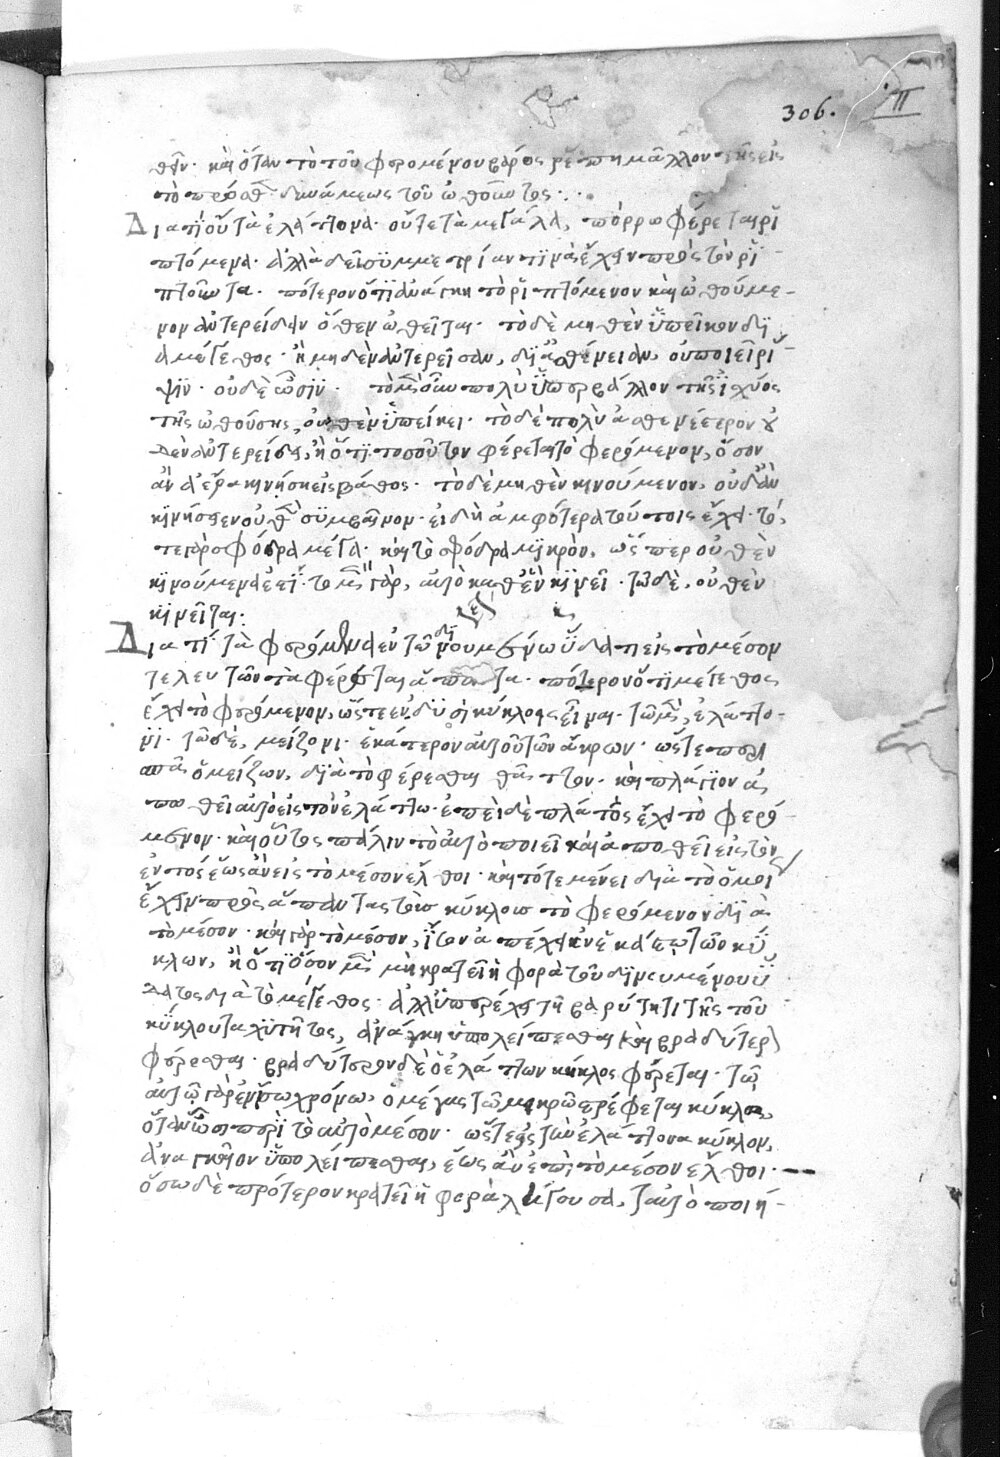 306. Π
θεῖν· καὶ ὅταν τὸ τοῦ φερομένου βάρος ῥέπῃ μᾶλλον τῆς εἰς
τὸ πρόσθεν δυνάμεως τοῦ ὠθοῦντος.
Διατί οὔτε τὰ ἐλάττονα· οὔτε τὰ μεγάλα, πόρρω φέρεται ῥι
πτόμενα· ἀλλὰ δεῖ συμμετρίαν τινὰ ἔχειν πρὸς τὸν ῥι-
πτοῦντα· πότερον ὅτι ἀνάγκη τὸ ῥιπτόμενον καὶ ὠθούμε-
νον ἀντερείδειν ὅθεν ὠθεῖται· τὸ δὲ μηθὲν ὑπεῖκον διὰ
μέγεθος· ἢ μηδὲν ἀντερεῖσαν, δι' ἀσθένειαν, οὐ ποιεῖ ῥί-
ψιν· οὐδὲ ὦσιν· τὸ μὲν οὖν πολὺ ὑπερβάλλον τῆς ἰσχύος
τῆς ὠθούσης, οὐθὲν ὑπείκει· τὸ δὲ πολὺ ἀσθενέστερον οὐ
δὲν ἀντερείδει, ἢ ὅτι τοσοῦτον φέρεται τὸ φερόμενον, ὅσον
ἂν ἀέρα κινήσῃ εἰς βάθος· τὸ δὲ μηθὲν κινούμενον, οὐδ' ἂν
κινήσειεν οὐθέν συμβαῖνον· εἰ δὴ ἀμφότερα τούτοις ἔχει· τό,
τε γὰρ σφόδρα μέγα· καὶ τὸ σφόδρα μικρὸν, ὥσπερ οὐθὲν
κινούμενά ἐστι· τὸ μὲν γὰρ, αὐτὸ καθ' ἓν κινεῖ· τὸ δὲ, οὐθὲν
κινεῖται:
Διατί τὰ φερόμενα ἐν τῷ δινουμένῳ ὕδατι εἰς τὸ μέσον
τελευτῶντα φέρεται ἅπαντα· πότερον ὅτι μέγεθος
ἔχει τὸ φερόμενον, ὥστε ἐν δυσὶ κύκλοις εἶναι· τῷ μὲν, ἐλάττο-
νι· τῷ δὲ, μείζονι· ἑκάτερον αὐτοῦ τῶν ἄκρων· ὥστε περι
σπᾷ ὁ μείζων, διὰ τὸ φέρεσθαι θᾶττον· καὶ πλάγιον ἀ
πωθεῖ αὐτὸ εἰς τὸν ἐλάττω· ἐπεὶ δὲ πλάτος ἔχει τὸ φερό-
μενον· καὶ οὗτος πάλιν τὸ αὐτὸ ποιεῖ καὶ ἀπωθεῖ εἰς τὸν
ἐντός ἕως ἂν εἰς τὸ μέσον ἔλθοι· καὶ τότε μένει διὰ τὸ ὁμοί
ἔχειν πρὸς ἅπαντας τοὺς κύκλους τὸ φερόμενον διὰ
τὸ μέσον· καὶ γὰρ τὸ μέσον, ἴσον ἀπέχει ἐν ἑκάστῳ τῶν κύ
κλων, ἢ ὅτι ὅσον μὲν μὴ κρατεῖ ἡ φορὰ τοῦ δινουμένου ὕ
δατος διὰ τὸ μέγεθος· ἀλλ' ὑπερέχει τῇ βαρύτητι τῆς τοῦ
κύκλου ταχύτητος, ἀνάγκη ὑπολείπεσθαι καὶ βραδύτερον
φέρεσθαι· βραδύτερον δὲ ὁ ἐλάττων κύκλος φέρεται· τῷ
αὐτῷ γὰρ ἐν ἴσῳ χρόνῳ, ὁ μέγας τῷ μικρῷ στρέφεται κύκλος,
ὅταν ὦσι περὶ τὸ αὐτὸ μέσον· ὥστε εἰς τὸν ἐλάττονα κύκλον,
ἀναγκαῖον ὑπολείπεσθαι, ἕως ἂν ἐπὶ τὸ μέσον ἔλθοι·
ὅσῳ δὲ πρότερον κρατεῖ ἡ φορὰ λήγουσα, ταὐτὸ ποιή-